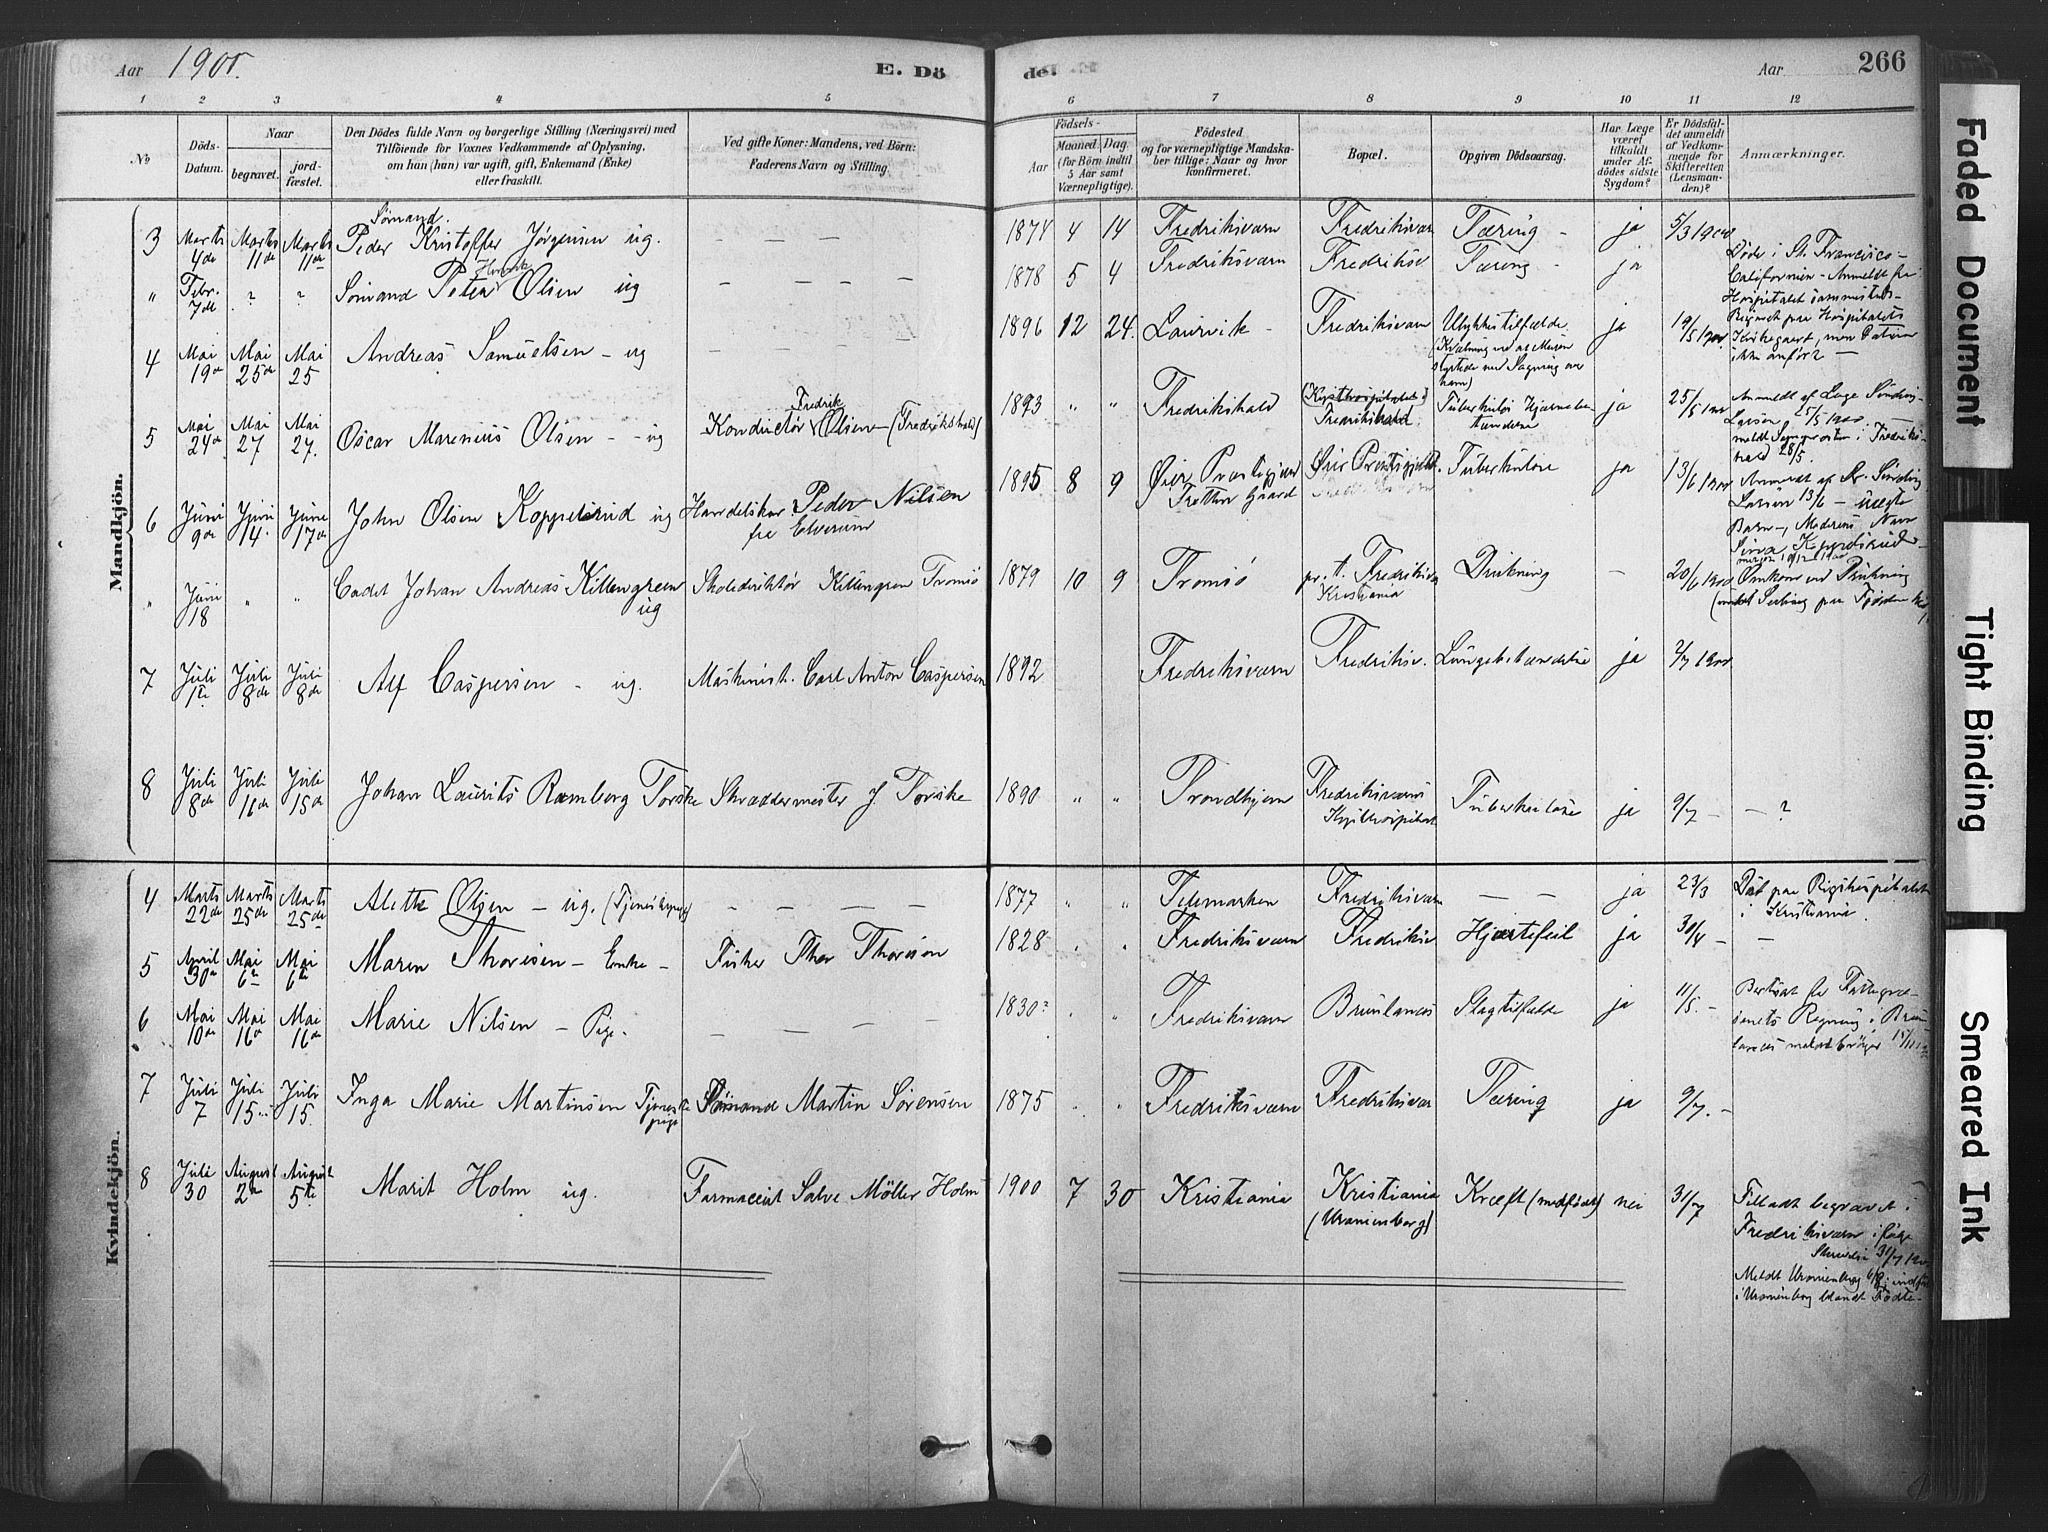 Aar 1900.
E. Dö
de.
Aar
266
1 2 3 4 5 6 7 8 9 10 11 12
No
Döds-Datum.
Naar
begravet.
jordfæstet.
Den Dödes fulde Navn og borgerlige Stilling (Næringsvei) med
Tilföiende for Voxnes Vedkommende af Oplysning,
om han (hun) var ugift, gift, Enkemand (Enke)
eller fraskilt.
Ved gifte Koner: Mandens, ved Börn:
Faderens Navn og Stilling.
Födsels-
Aar
Maaned. Dag.
(for Börn indtil
5 Aar samt
Værnepligtige).
Födested
og for værnepligtige Mandska-
ber tillige: Naar og hvor
konfirmeret.
Bopæl.
Opgiven Dödsaarsag.
Har Læge
været
tilkaldt
under Af-
dödes sidste
Sygdom?
Er Dödsfal-
det anmeldt
af Vedkom-
mende for
Skifteretten
(Lensman-
den)?
Anmærkninger.
Mandkjön.
3 Marts 4de Marts 11de Marts 11de Sömand. Peder Kristoffer Jörgensen ug. — — — 1874 4 14 Fredriksværn Fredriksværn Tæring - ja 5/3 1900
" Febr. 7de ? ? Sömand Peter Olsen ug — — — 1878 5 4 Fredriksværn Fredriksv Tæring - ja Döde i St. Francisco -
Californien - Anmeldt fra
Hospitalet sammesteds -
Begravet paa Hospitalets
Kirkegaard, men Datum
ikke anfört —
4 Mai 19de Mai 25de Mai 25 Andreas Samuelsen - ug — — — 1896 12 24. Laurvik - Fredriksværn Ulykkestilfælde.
(Kvælning ved at Muren
styrtede ned
ham) ja 19/5 1900
5 Mai 24de Mai 27 Mai 27. Oscar Marenius Olsen - ug Konductör Fredrik Olsen - (Fredrikshald) 1893 " " Fredrikshald (Kysthospitalet)
Fredrikshald. Tuberkulös Hjernebe-
tændelse ja 25/5 1900 Anmeldt af Læge Sinding-
Larsen 25/5 1900 -
meldt Sognepresten i Fredriks-
hald 28/5.
6 Juni 9de Juni 14. Juni 17de John Olsen Koppelsrud ug Handelskar. Peder Nilsen
fra Elverum 1895 8 9 Öier Præstegjæld
Fretten Gaard Öier Præstegjæld. Tuberkulose ja 13/6 1900 Anmeldt af Dr. Sinding
Larsen 13/6 — uægte
Barn -, Moderens Navn
Koppelsrud -
" Juni 18 " " Cadet Johan Andreas Killengreen
ug Skoledirektör Killengren Tromsö 1879 10 9 Tromsö p. t. Fredriksv
Kristiania Drukning — 20/6 1900 Omkom ved Drukning
(under Seiling paa Fjorden
7 Juli 1te Juli 8de Juli 8de Alf Caspersen - ug. Maskinist. Carl Anton Caspersen 1892 Fredriksværn Fredriksv. Lungebetændelse ja 2/7 1900
8 Juli 8de Juli 16de Juli 15de Johan Laurits Ramberg Torske Skræddermester J Torske 1890 " " Trondhjem Fredriksværns
Kysthospital Tuberkulose ja 9/7 — — ?
Kvindekjön.
4 Marts 22de Marts 25de Marts 25de Alette Olsen - ug. (Tjenestepige) — — — — 1877 " " Telemarken Fredriksværn — — ja 23/3 Död paa Rigshospitalet
i Kristiania.
5 April 30te Mai 6te Mai 6te Maren Thorisen - Enke - Fisker Thor Thorisen 1828 " " Fredriksværn Fredriksv Hjertefeil ja 30/4 — —
6 Mai 10de Mai 16de Mai 16de Marie Nilsen - Pige. — — — — 1830? " " Fredriksværn Brunlanæs Slagtilfælde ja 11/5. — Bortsat for Fattigvæ-
senets Regning i Brun
lanæs
7 Juli 7 Juli 15 Juli 15. Inga Marie Martinsen Tjeneste
pige Sömand Martin Sörensen 1875 " " Fredriksværn Fredriksvær Tæring ja 9/7. — —
8 Juli 30 August 2den August 5te Marit Holm ug. Farmaceut Salve Möller Holm 1900 7 30 Kristiania Kristiania
(Uranienborg) Kræft (medfödt) nei 31/7 Tilladt begravet i
Fredriksværn ifölge
Skrivelse 31/7 1900
Meldt Uranienborg 6/8; indfört
i Uranienborg blandt Födte -
Faded Document
Tight Binding
Smeared Ink